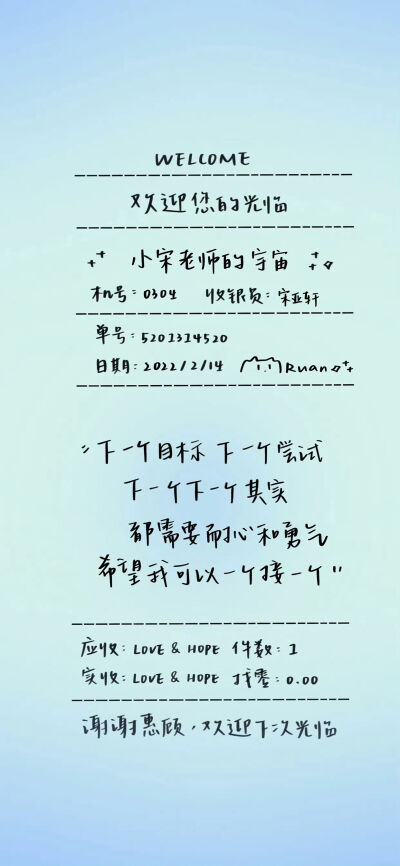 WELCOME
欢迎您的光临
小宋老师的宇宙
机号：0304 收银员：宋亚轩
单号：5201314520
日期：2022/2/14 Ruan
"下一个目标 下一个尝试
下一个下一个其实
都需要耐心和勇气
希望我可以一个接一个"
应收：LOVE & HOPE 件数：1
实收：LOVE & HOPE 找零：0.00
谢谢惠顾，欢迎下次光临